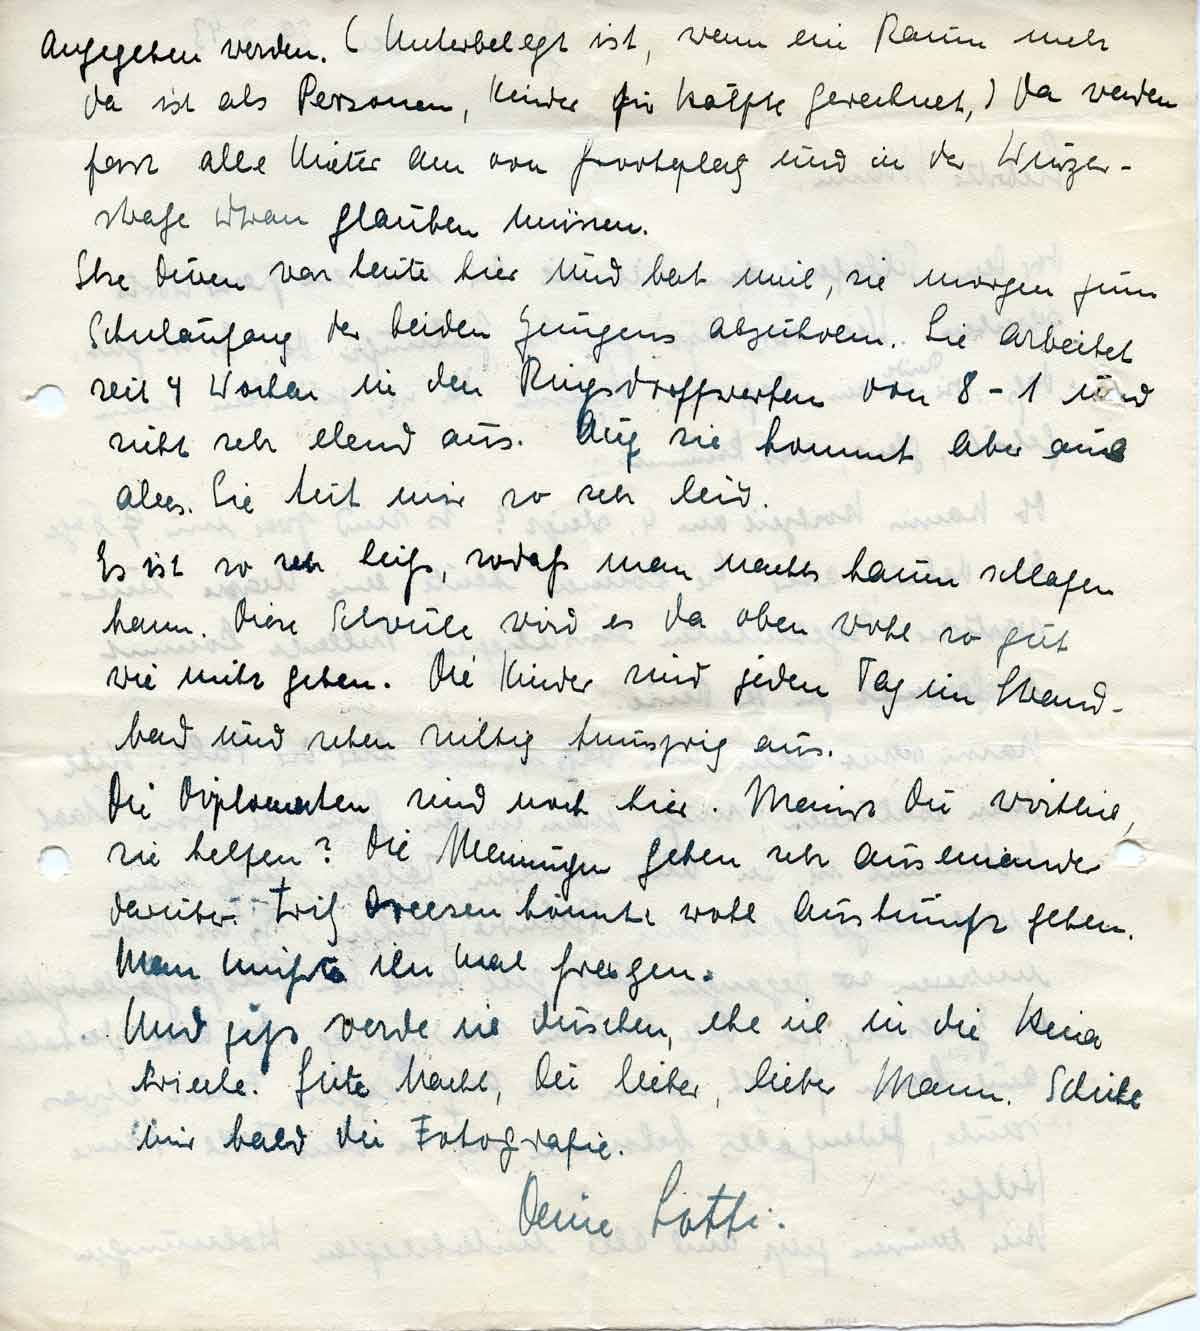 angegeben werden. (Unterbelegt ist, wenn ein Raum mehr
da ist als Personen, Kinder für Hälfte gerechnet,) Da werden
fast alle Mieter am von Groote platz und in der Wurzer-
straße dran glauben müssen.
Else Düren war heute hier und bat mich, sie morgen zum
Schulanfang der beiden Jungens abzuholen. Sie arbeitet
seit 4 Wochen in den Ringsdorffwerken von 8 - 1 und
sieht sehr elend aus. Auf sie kommt aber auch
alles. Sie tut mir so sehr leid.
Es ist so sehr heiß, sodaß man nachts kaum schlafen
kann. Diese Schwüle wird es da oben wohl so gut
wie nicht geben. Die Kinder sind jeden Tag im Strand-
bad und sehen richtig knusprig aus.
Die Diplomaten sind noch hier. Meinst Du wirklich,
sie helfen? Die Meinungen gehen sehr auseinander
darüber. Fritz Dreesen könnte wohl Auskunft geben.
Man müßte ihn mal fragen.
Und jetzt werde ich duschen, ehe ich in die Heia
krieche. Gute Nacht, Du lieber, lieber Mann. Schicke
mir bald die Fotografie.
Deine Lotti.